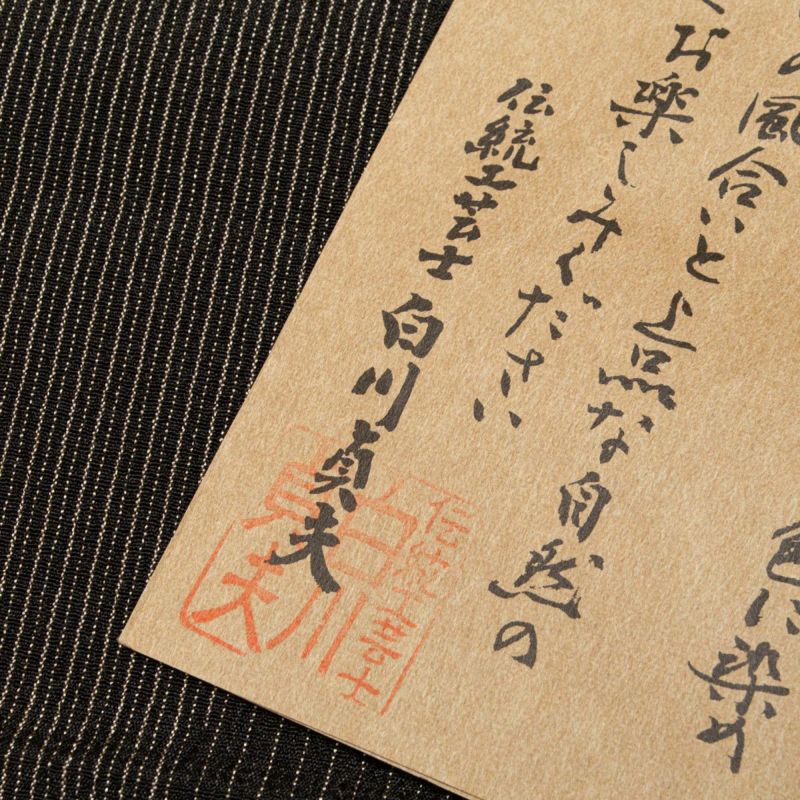 色に染め
の風合いと上品な自然の
くお楽しみください
伝統工芸士 白川貞夫
伝統工芸士
白川
貞夫